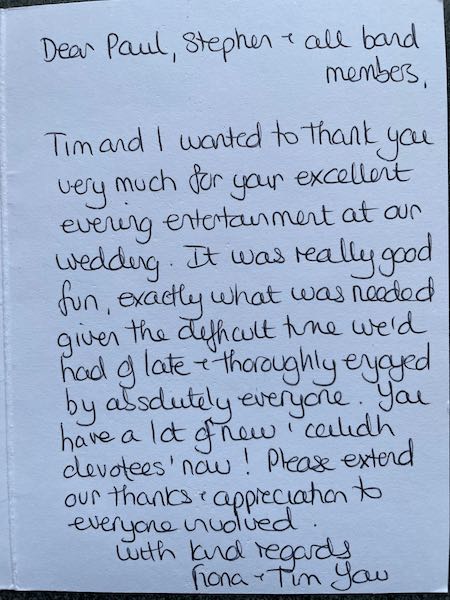 Dear Paul, Stephen + all band
members,
Tim and I wanted to thank you
very much for your excellent
evening entertainment at our
wedding. It was really good
fun, exactly what was needed
given the difficult time we'd
had of late + thoroughly enjoyed
by absolutely everyone. You
have a lot of new 'ceilidh
devotees' now! Please extend
our thanks + appreciation to
everyone involved.
With kind regards
Fiona + Tim